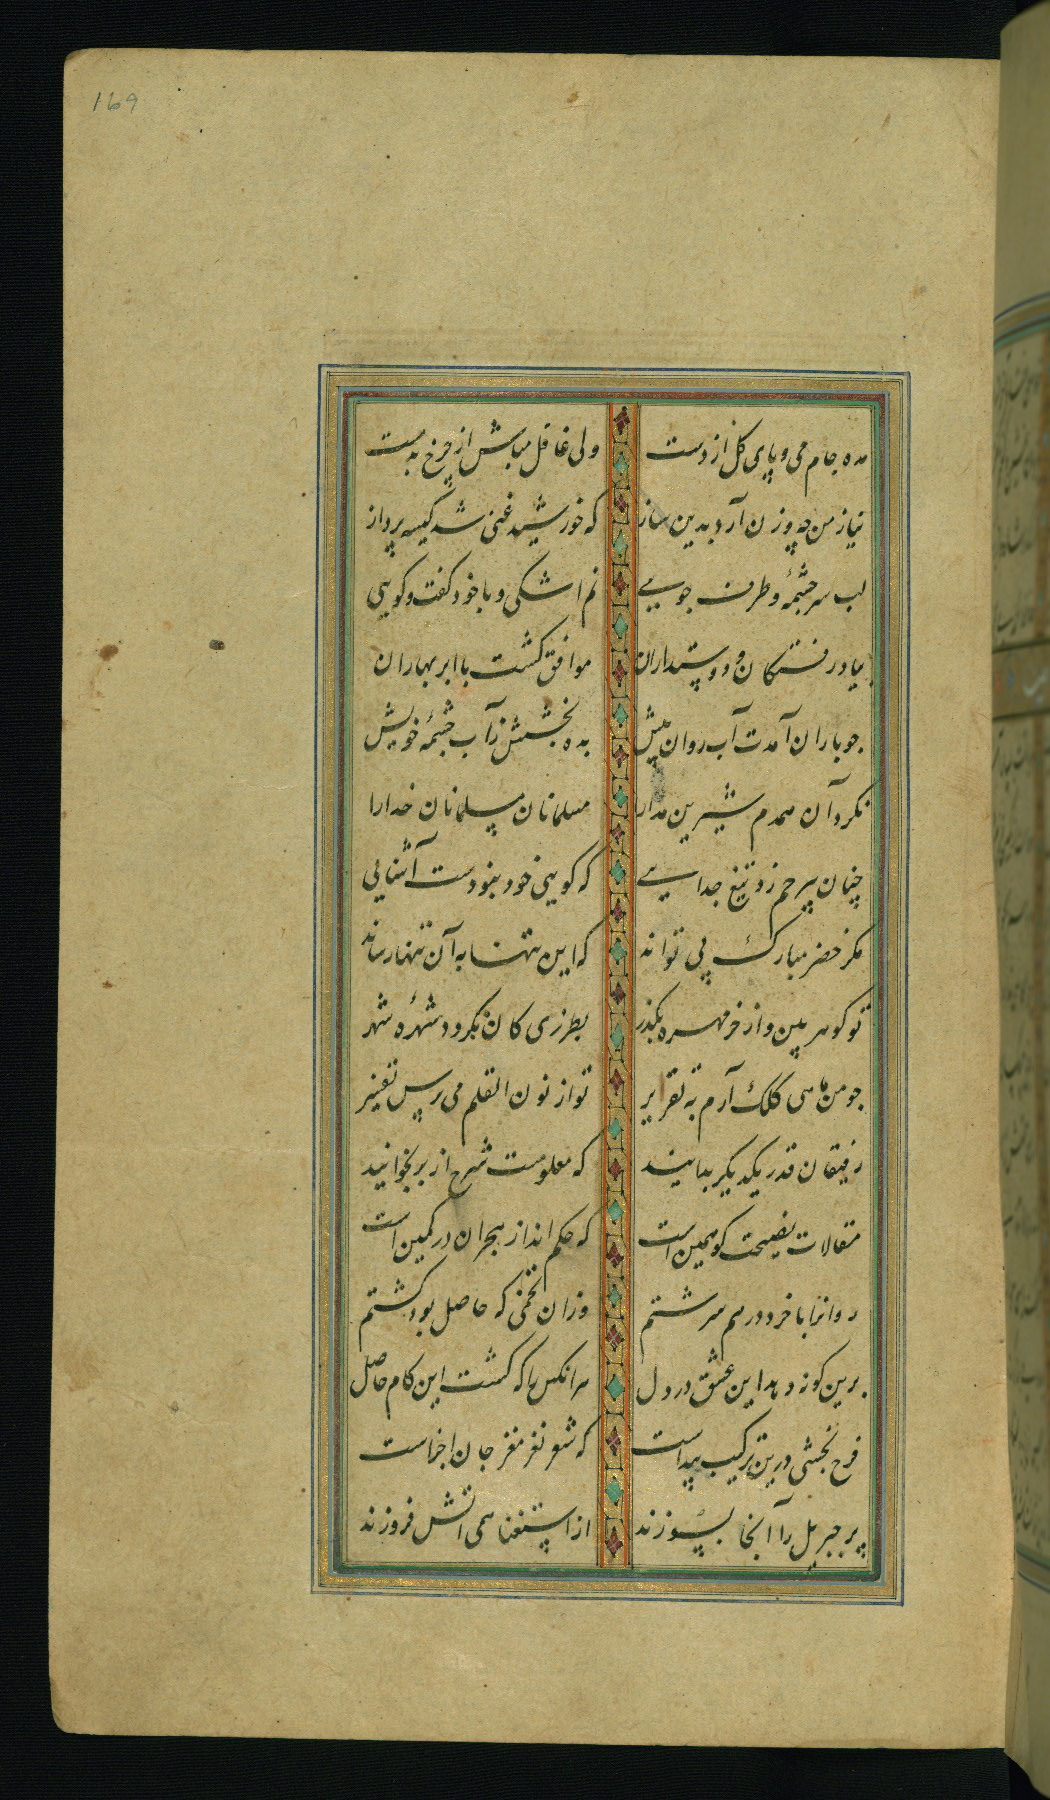 169
مده جام می و پای کل از دست ولی غافل مباش از چرخ بدمست
نیاز من چه وزن آرد بدین ساز که خورشید غنی شد کیسه پرداز
لب سر چشمهٔ و طرف جویی نم اشکی و با خود کفت و کویی
بیاد رفتکان و دوستداران موافق کشت با ابر بهاران
جو باران آمدت آب روان پیش بده بخشش ز آب چشمهٔ خویش
نکرد آن همدم شیرین مدارا مسلمانان مسلمانان خدارا
چنان بیرحم زد تیغ جدایی که کویی خود نبودست آشنایی
مکر خضر مبارک پی تواند که این تنها به آن تنها رساند
تو کوهر بین و از خرمهره بکذر بطرزی کان نکردد شهرهٔ شهر
جو من ماهی کلک آرم به تقریر تو از نون القلم می پرس تفسیر
رفیقان قدر یکدیکر بدانید که معلومست شرح از بر بخوانید
مقالات نصیحت کو همین است که حکم انداز هجران در کمین است
روانرا با خرد درهم سرشتم وزان تخمی که حاصل بود کشتم
برین کونه دهد این عشق در دل هر آنکس را که کشت این کام حاصل
فرح بخشی درین ترکیب پیداست که شعر نغز مغز جان اجزاست
پر جبریل را آنجا بسوزند از استغنا همی آتش فروزند